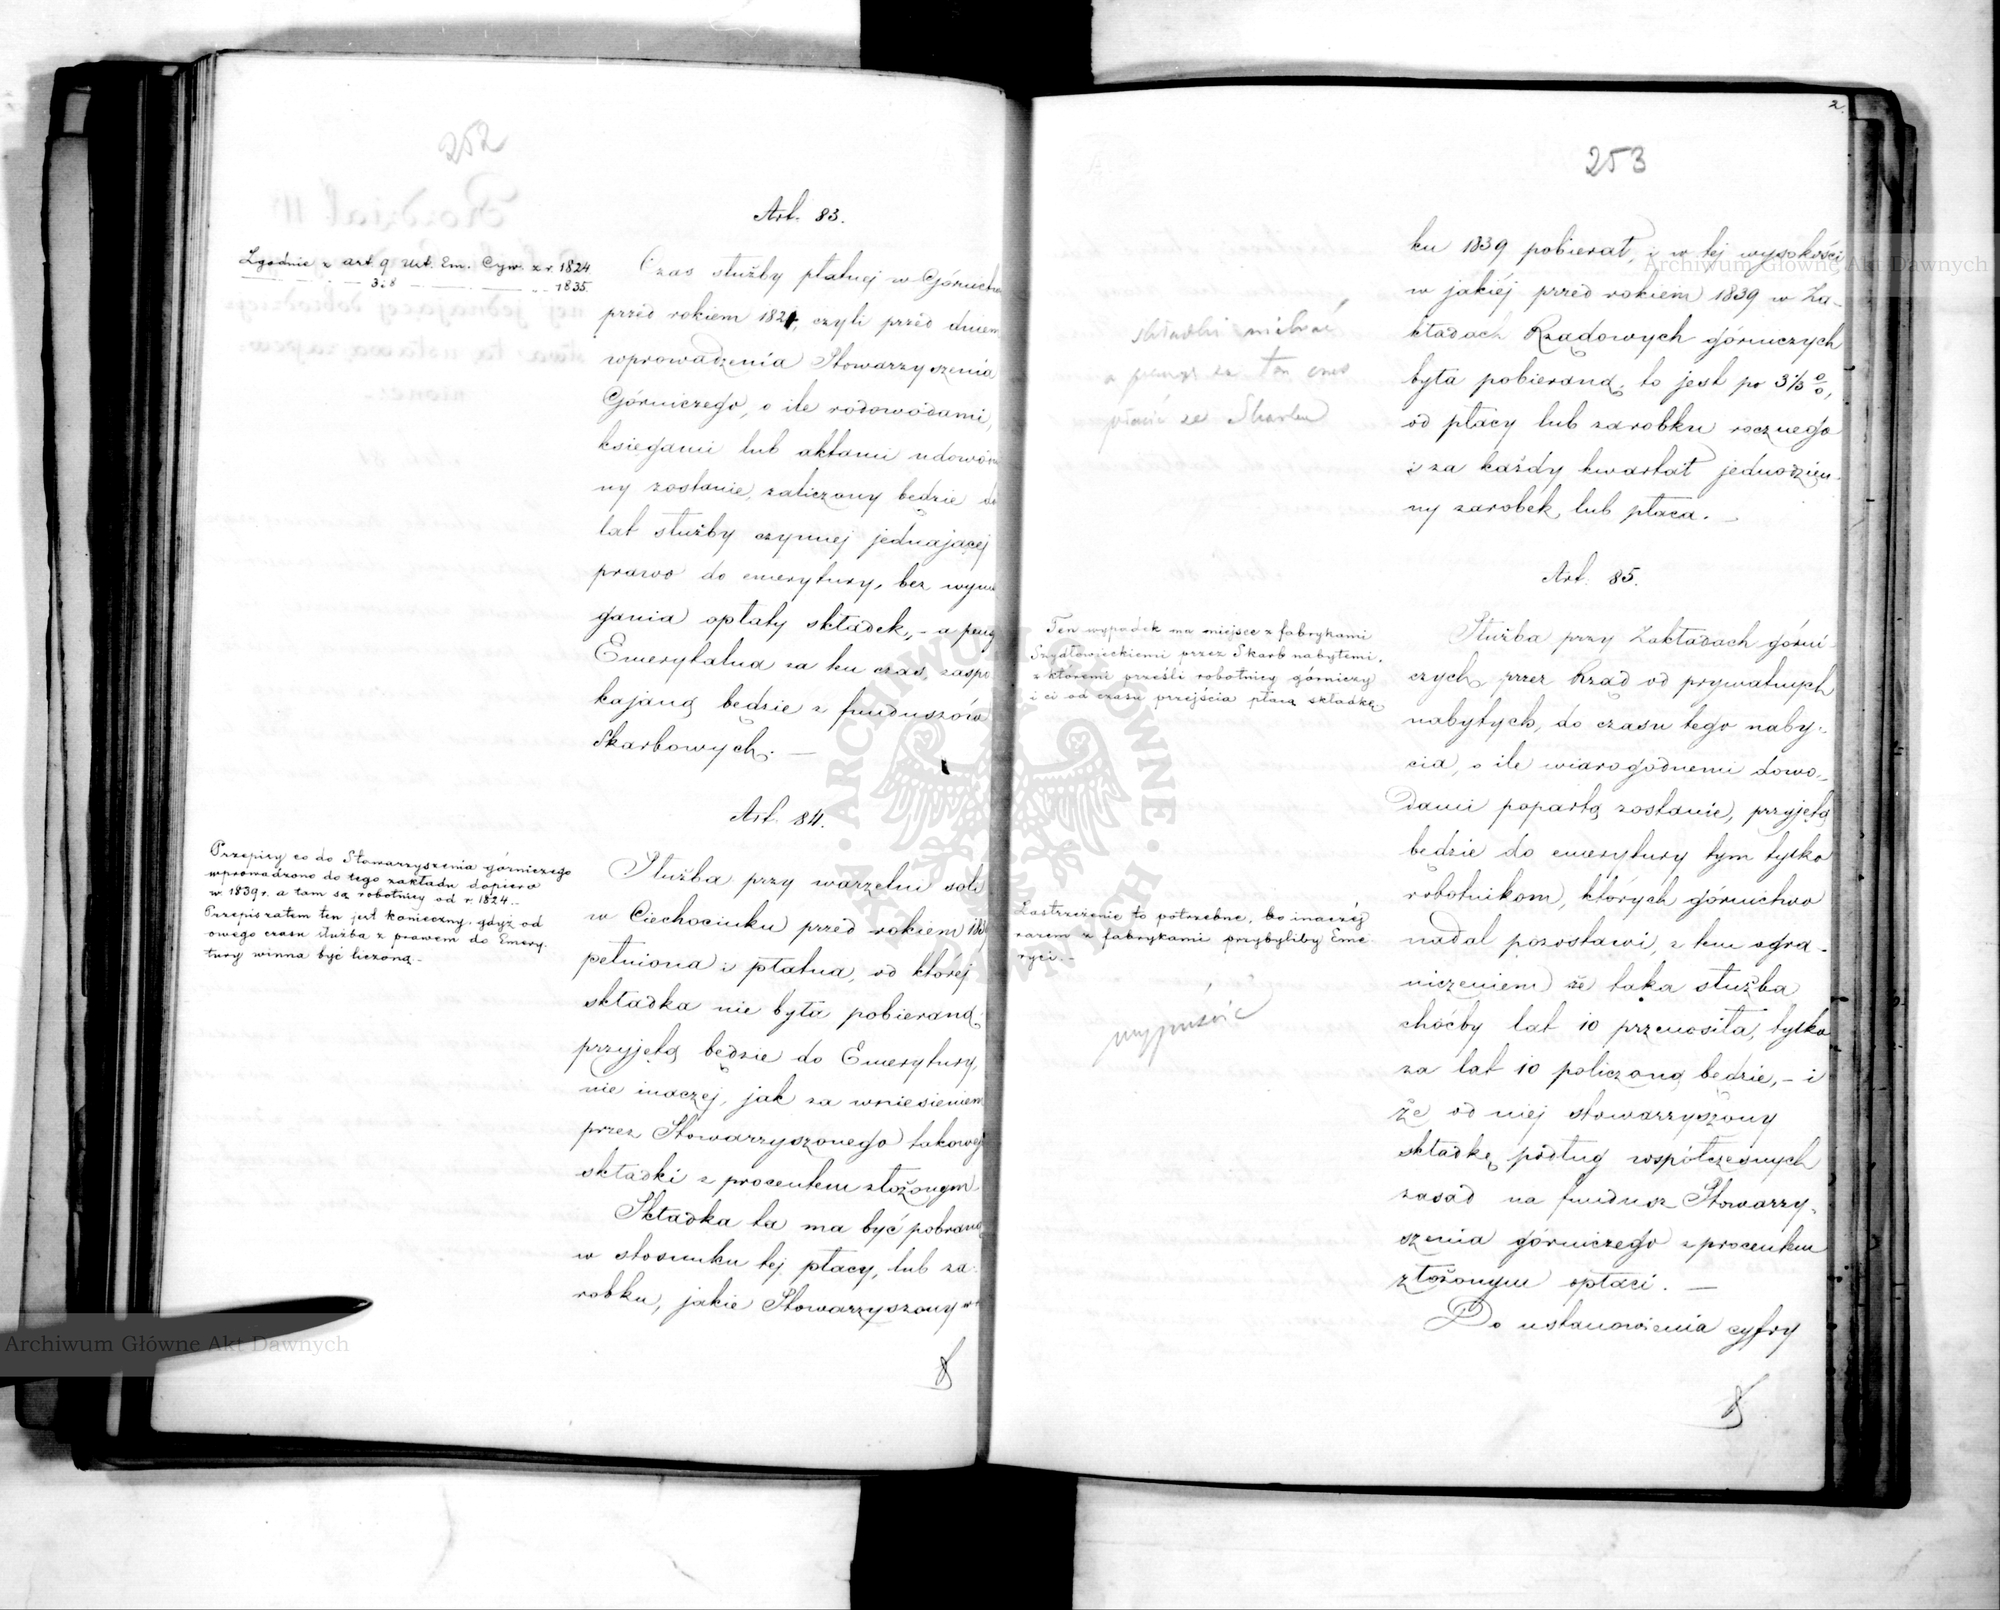 252
Art. 83.
Zgodnie z art. 9 Ust. Em. Cyw. z r. 1824.
3 i 8 1835.
Czas służby płatnej w Górnictw
przed rokiem 1824, czyli przed dniem
wprowadzenia Stowarzyszenia
Górniczego, o ile rodowodami,
księgami lub aktami udowód
ny zostanie, zaliczony będzie do
lat służby czynnej jednającej
prawo do emerytury, bez wyma
gania opłaty składek, – a
Emerytalna za ten czas, zaspo
kajaną będzie z funduszów
Skarbowych. –
Art. 84.
Przepisy co do Stowarzyszenia górniczego
wprowadzono do tego zakładu dopiero
w 1839 r. a tam są robotnicy od r. 1824. –
Przepis zatem ten jest konieczny, gdyż od
owego czasu służba z prawem do Emery
tury winna być liczoną. –
Służba przy warzelni soli
w Ciechocinku przed rokiem
pełniona i płatna, od której
składka nie była pobieraną,
przyjętą będzie do Emerytury,
nie inaczej, jak za wniesieniem
przez Stowarzyszonego takowej
składki z procentem złożonym.
Składka ta ma być pobraną
w stosunku tej płacy, lub za-
robku, jakie Stowarzyszony w
2
253
ku 1839 pobierał, i w tej wysokości
w jakiéj przed rokiem 1839 w Za-
kładach Rządowych górniczych
była pobieraną, to jest po 3 1/3 %,
od płacy lub zarobku rocznego
i za każdy kwartał jednodzien-
ny zarobek, lub płaca. –
składki
a za ten czas
ze Skarbu
Art. 85.
Ten wypadek ma miejsce z fabrykami
Szydłowieckiemi przez Skarb nabytemi,
z któremi prześli robotnicy górniczy
i ci od czasu przejścia płacą składkę
Służba przy Zakładach górni-
czych, przez Rząd od prywatnych
nabytych, do czasu tego naby-
cia, o ile wiarogodnemi dowo-
dami popartą zostanie, przyjętą
będzie do emerytury tym tylko
robotnikom, których górnictwo
nadal pozostawi, z tem ogra-
niczeniem że taka służba
choćby lat 10 przenosiła, tylko
za lat 10 policzoną będzie, – i
że od niej stowarzyszony
składkę podług współczesnych
zasad na fundusz Stowarzy-
szenia górniczego z procentem
złożonym opłaci. –
Do ustanowienia cyfry
Zastrzeżenie to potrzebne, bo inaczéj
razem z fabrykami przybyliby Eme-
ryci. –
wypuścić
Archiwum Główne Akt Dawnych
Archiwum Główne Akt Dawnych
ARCHIWUM GŁÓWNE AKT DAWNYCH